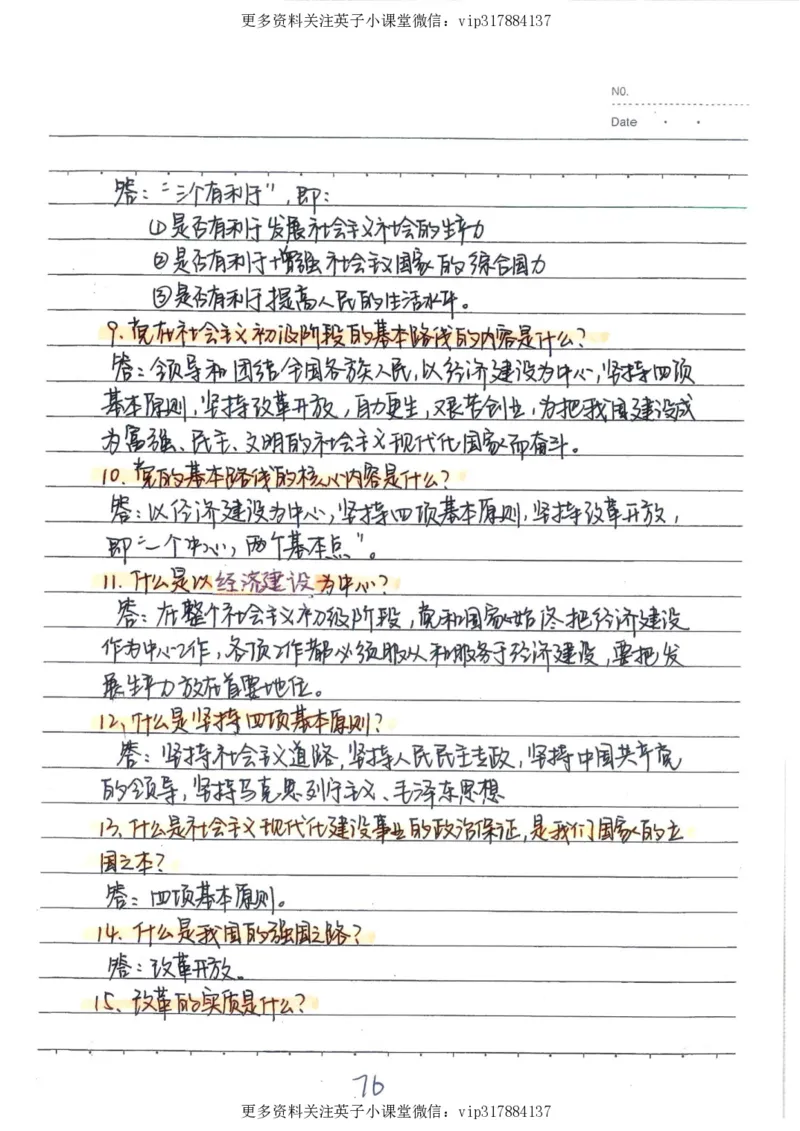 更多资料关注英子小课堂微信：vip317884137
NO.
Date
答："三个有利于"，即：
①是否有利于发展社会主义社会的生产力
②是否有利于增强社会主义国家的综合国力
③是否有利于提高人民的生活水平。
9.党在社会主义初级阶段的基本路线的内容是什么？
答：领导和团结全国各族人民，以经济建设为中心，坚持四项
基本原则，坚持改革开放，自力更生，艰苦创业，为把我国建设成
为富强、民主、文明的社会主义现代化国家而奋斗。
10.党的基本路线的核心内容是什么？
答：以经济建设为中心，坚持四项基本原则，坚持改革开放，
即"一个中心，两个基本点"。
11.什么是以经济建设为中心？
答：在整个社会主义初级阶段，党和国家始终把经济建设
作为中心工作，各项工作都必须服从和服务于经济建设，要把发
展生产力放在首要地位。
12、什么是坚持四项基本原则？
答：坚持社会主义道路，坚持人民民主专政，坚持中国共产党
的领导，坚持马克思列宁主义、毛泽东思想
13、什么是社会主义现代化建设事业的政治保证，是我们国家的立
国之本？
答：四项基本原则。
14.什么是我国的强国之路？
答：改革开放。
15、改革的实质是什么？
76
更多资料关注英子小课堂微信：vip317884137